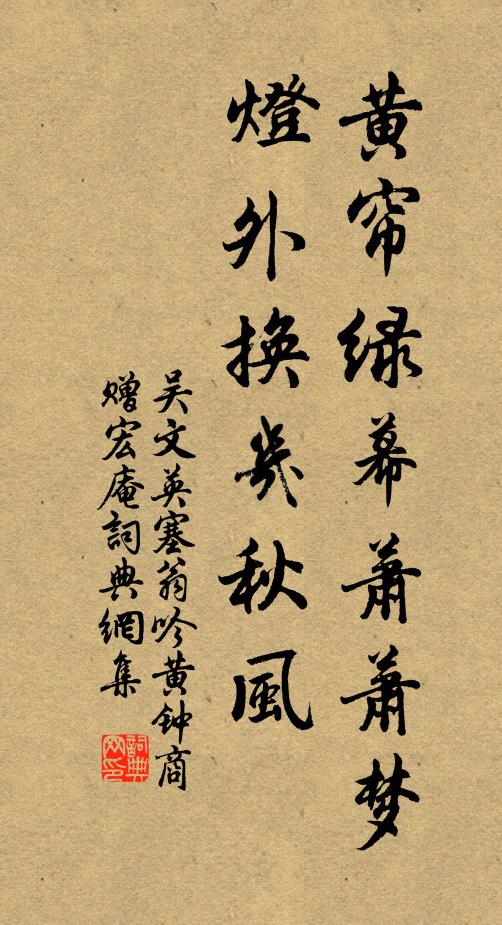 黄帘绿幕萧萧梦
燈外换幾秋風
吴文英塞翁吟黄钟商
赠宏庵詞典網集
詞典网印